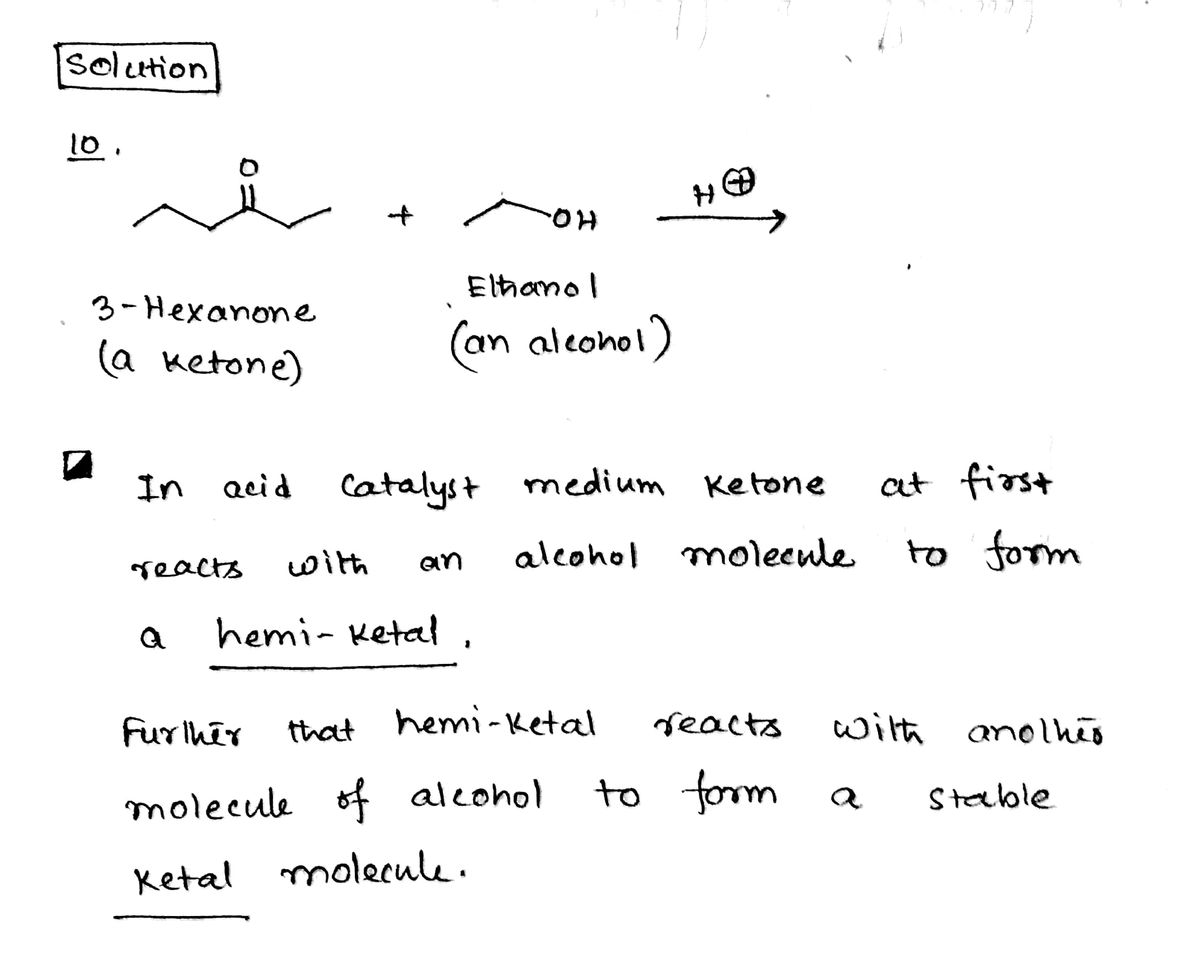 Solution
10.
O
+ OH H⊕
3-Hexanone
(a ketone)
Ethanol
(an alcohol)
In acid catalyst medium ketone at first
reacts with an alcohol molecule to form
a hemi-ketal.
Further that hemi-ketal reacts with another
molecule of alcohol to form a stable
ketal molecule.